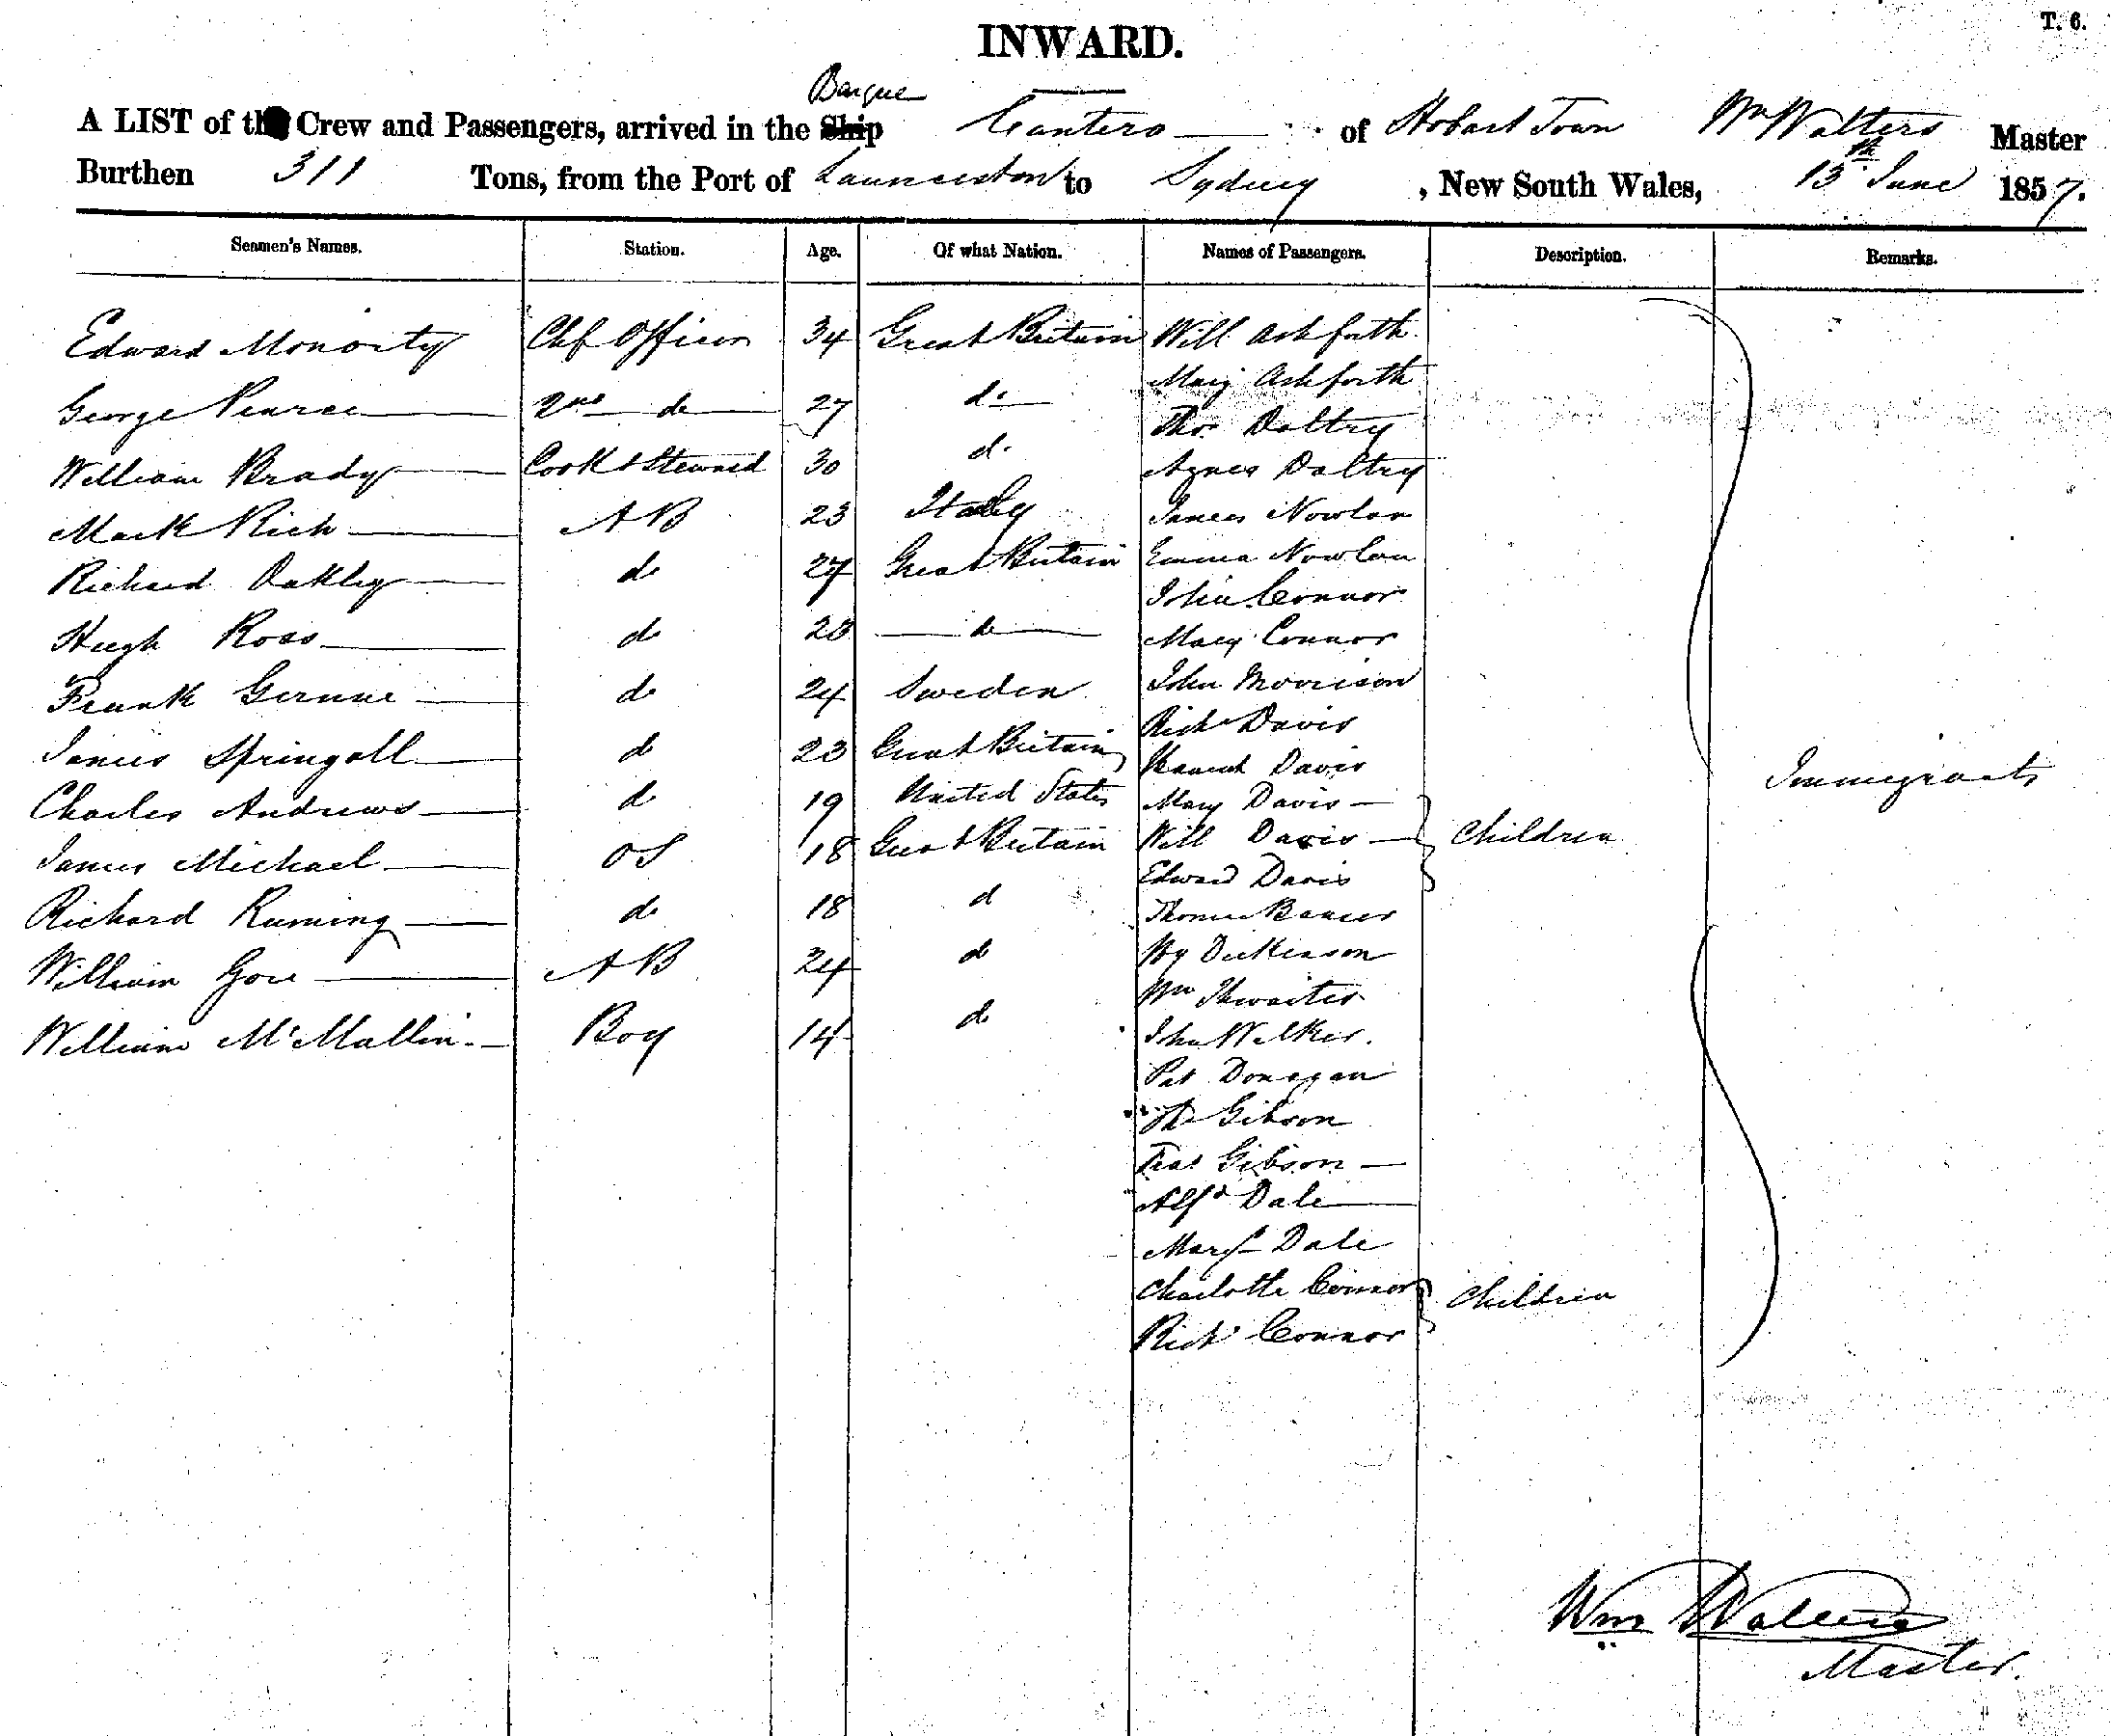 T. 6.
INWARD.
Barque
A LIST of the Crew and Passengers, arrived in the Ship Cantero of Hobart Town Wm Walters Master
Burthen 311 Tons, from the Port of Launceston to Sydney, New South Wales, 13th June 1857.
Seamen's Names. Station. Age. Of what Nation. Names of Passengers. Description. Remarks.
Edward Monority Chf Officer 34 Great Britain Will Ashforth
Mary Ashforth
George Pearce 2nd do 27 do
Thos Daltry
William Brady Cook & Steward 30 do Agnes Daltry
Mark Rich AB 23 Italy James Nowlan
Richard Oakley do 27 Great Britain Emma Nowlan
John Connor
Hugh Ross do 28 do Mary Connor
Frank do 24 Sweden John Morrison
Richd Davis
James Springall do 23 Great Britain Hannah Davis
Charles Andrews do 19 United States Mary Davis
James Michael OS 18 Great Britain Will Davis Children
Edward Davis
Richard Ruming do 18 do Thomas
William Gore AB 24 do Hy Dickinson
Wm Thwaites
William McMallin Boy 14 do John Walker
Pat Donegan
Gibson
Gibson
Alfd Dale
Margt Dale
Charlotte Connor Children
Richd Connor
Immigrants
Wm Walters
Master.